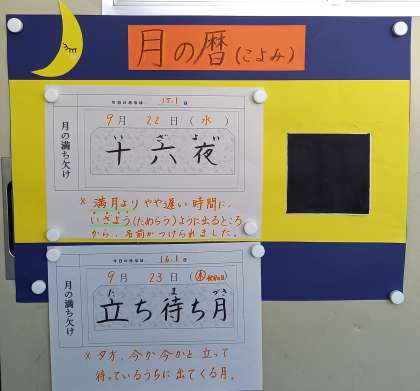 月の暦(こよみ)
今日の月齢は、 15.1 日
月の満ち欠け
9月 22日(水)
いざよい
十六夜
※満月よりやや遅い時間に、
いざよう(ためらう)ように出るところ
から、名前がつけられました。
今日の月齢は、 16.1 日
月の満ち欠け
9月 23日(木
た ま つき
立ち待ち月
※夕方、今か今かと立って
待っているうちに出てくる月。